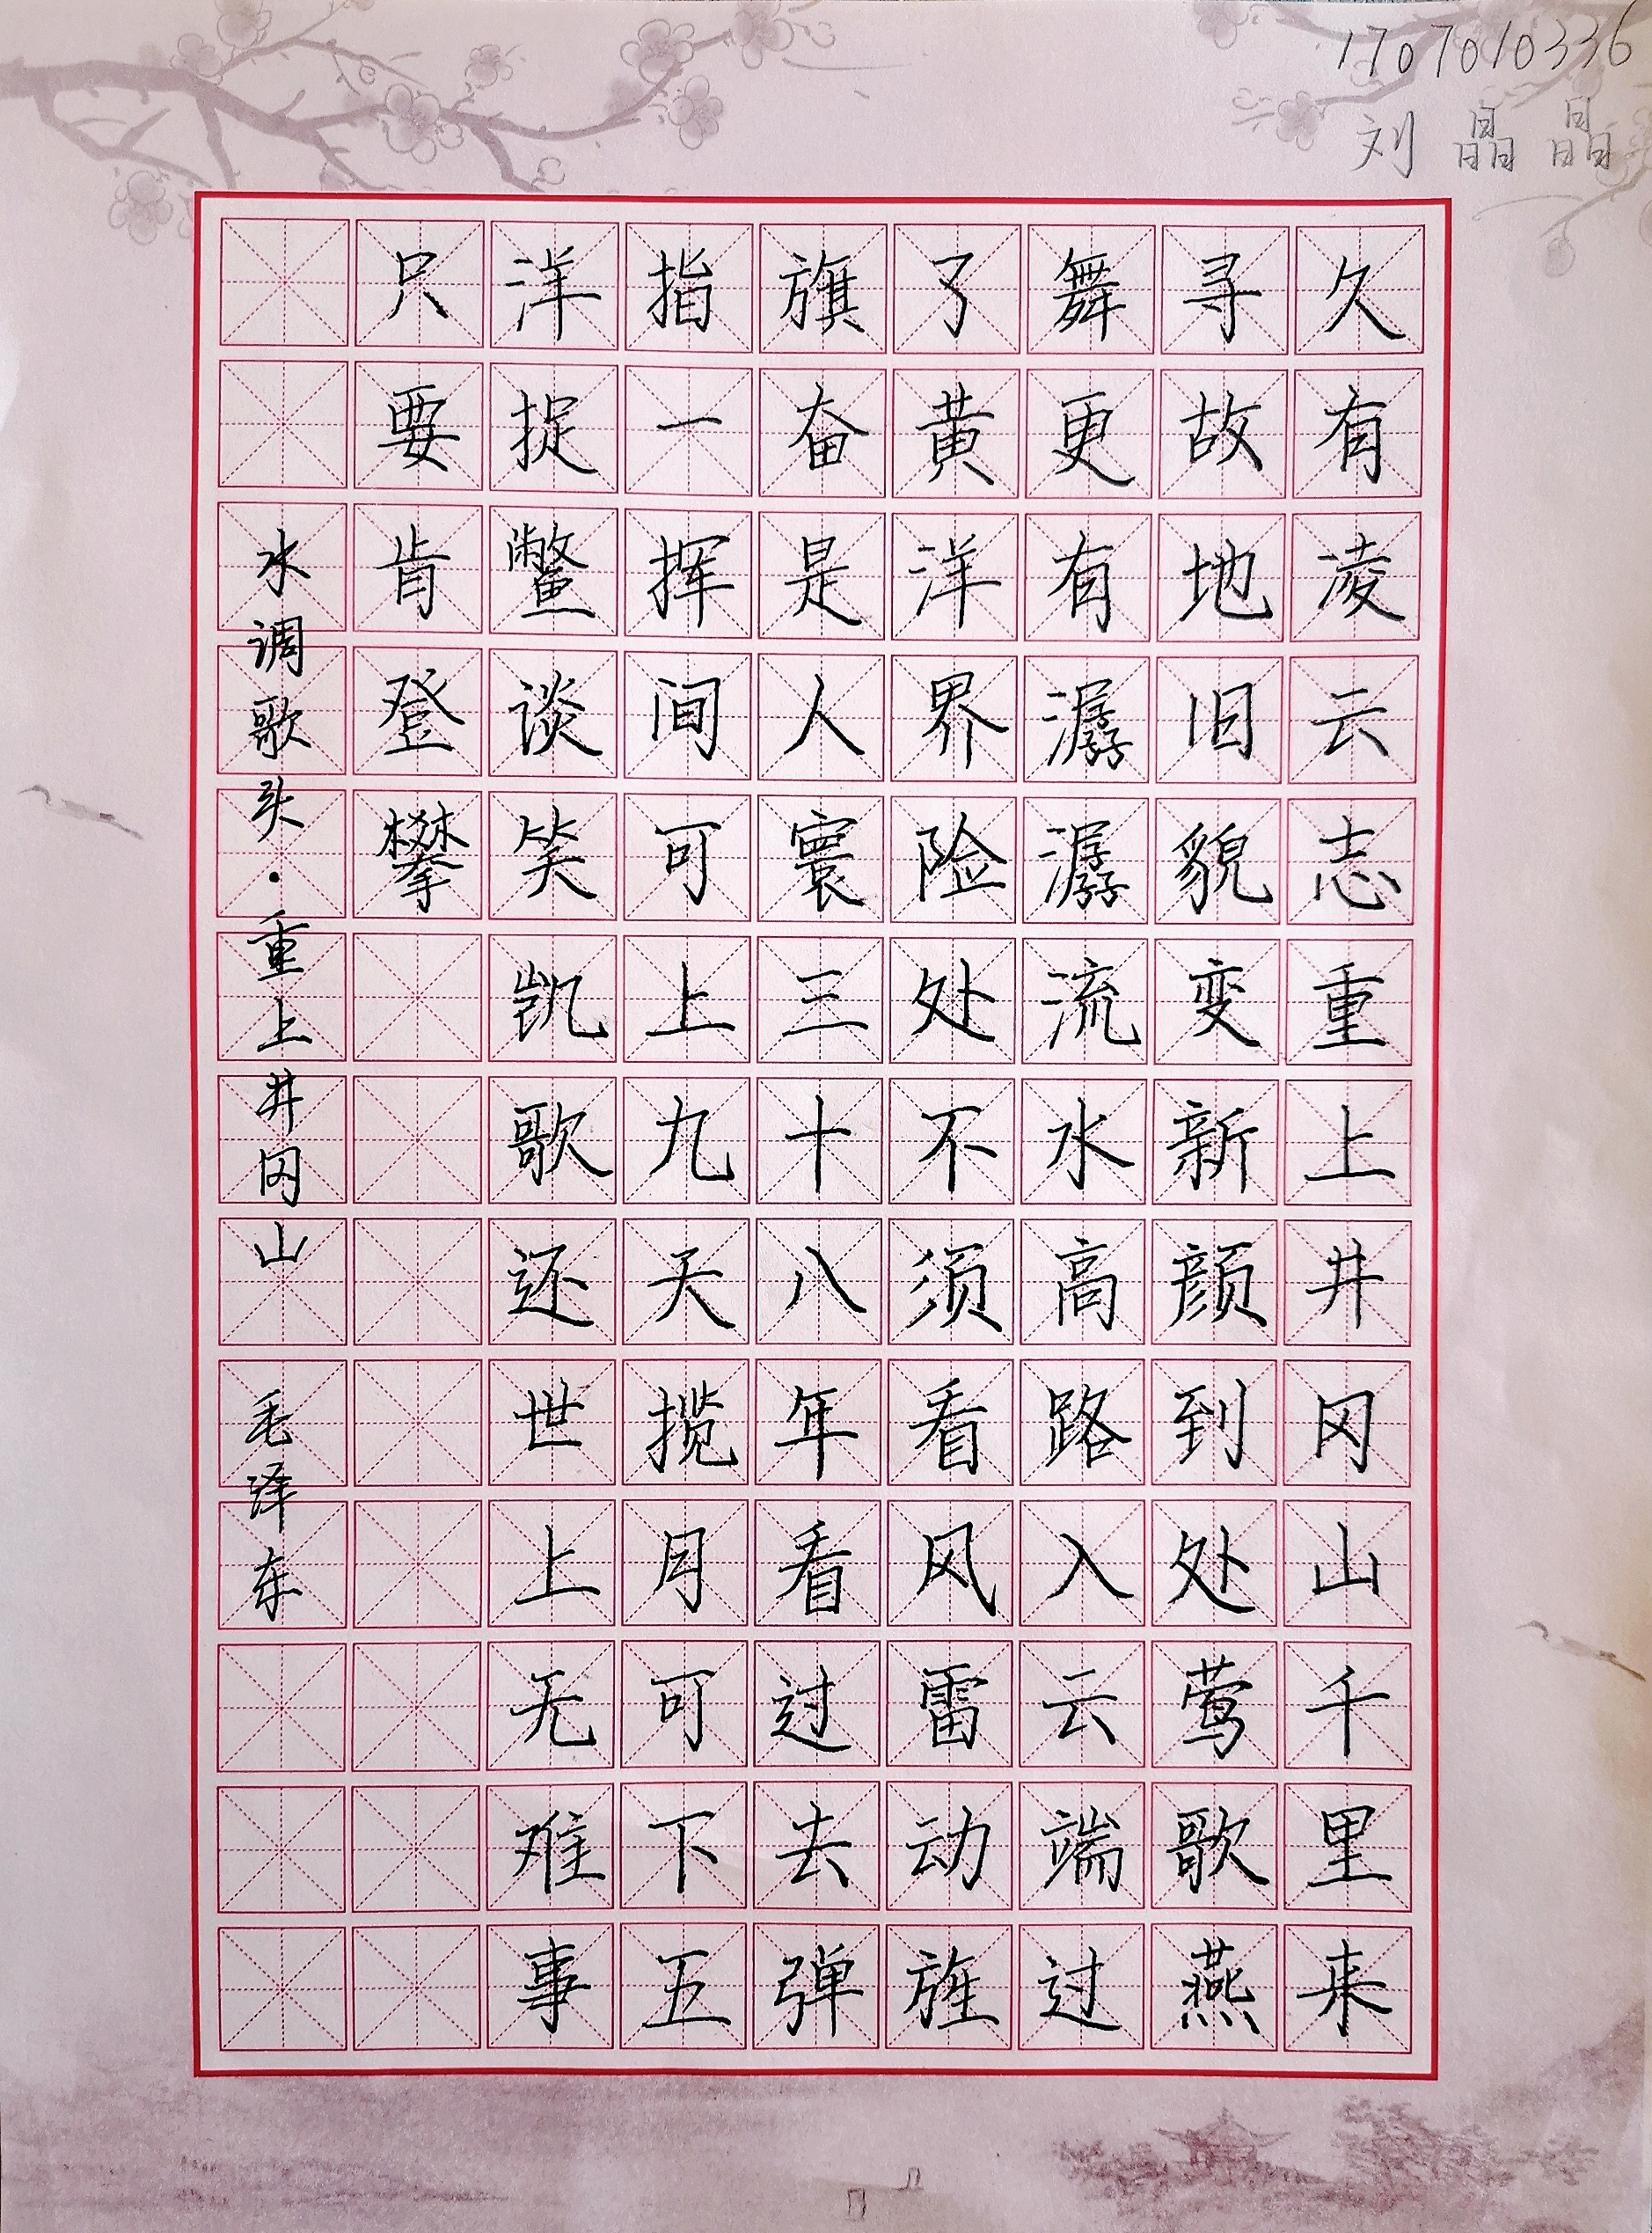 1707010336
刘晶晶
久有凌云志重上井冈山千里来
寻故地旧貌变新颜到处莺歌燕
舞更有潺潺流水高路入云端过
了黄洋界险处不须看风雷动旌
旗奋是人寰三十八年看过去弹
指一挥间可上九天揽月可下五
洋捉鳖谈笑凯歌还世上无难事
只要肯登攀
水调歌头·重上井冈山 毛泽东